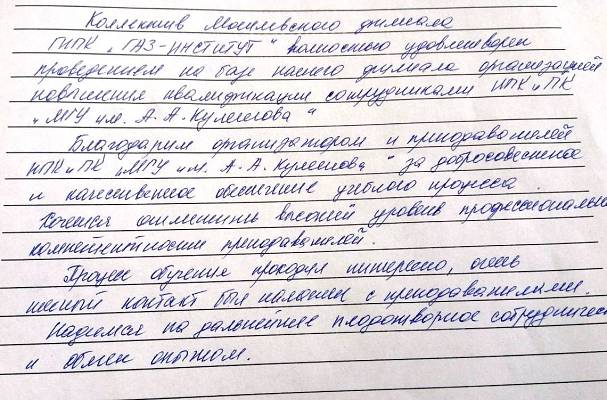 Коллектив Могилевского филиала
ГИПК „ГАЗ-ИНСТИТУТ" полностью удовлетворен
проведением на базе нашего филиала организацией
повышения квалификации сотрудниками ИПК и ПК
„МГУ им. А. А. Кулешова"
Благодарим организаторов и преподавателей
ИПК и ПК „МГУ им. А. А. Кулешова" за добросовестное
и качественное обеспечение учебного процесса.
Хочется отметить высокий уровень профессиональн
компетентности преподавателей.
Процесс обучения проходил интересно, очень
тесный контакт был налажен с преподавателями.
Надеемся на дальнейшее плодотворное сотрудничес
и обмен опытом.